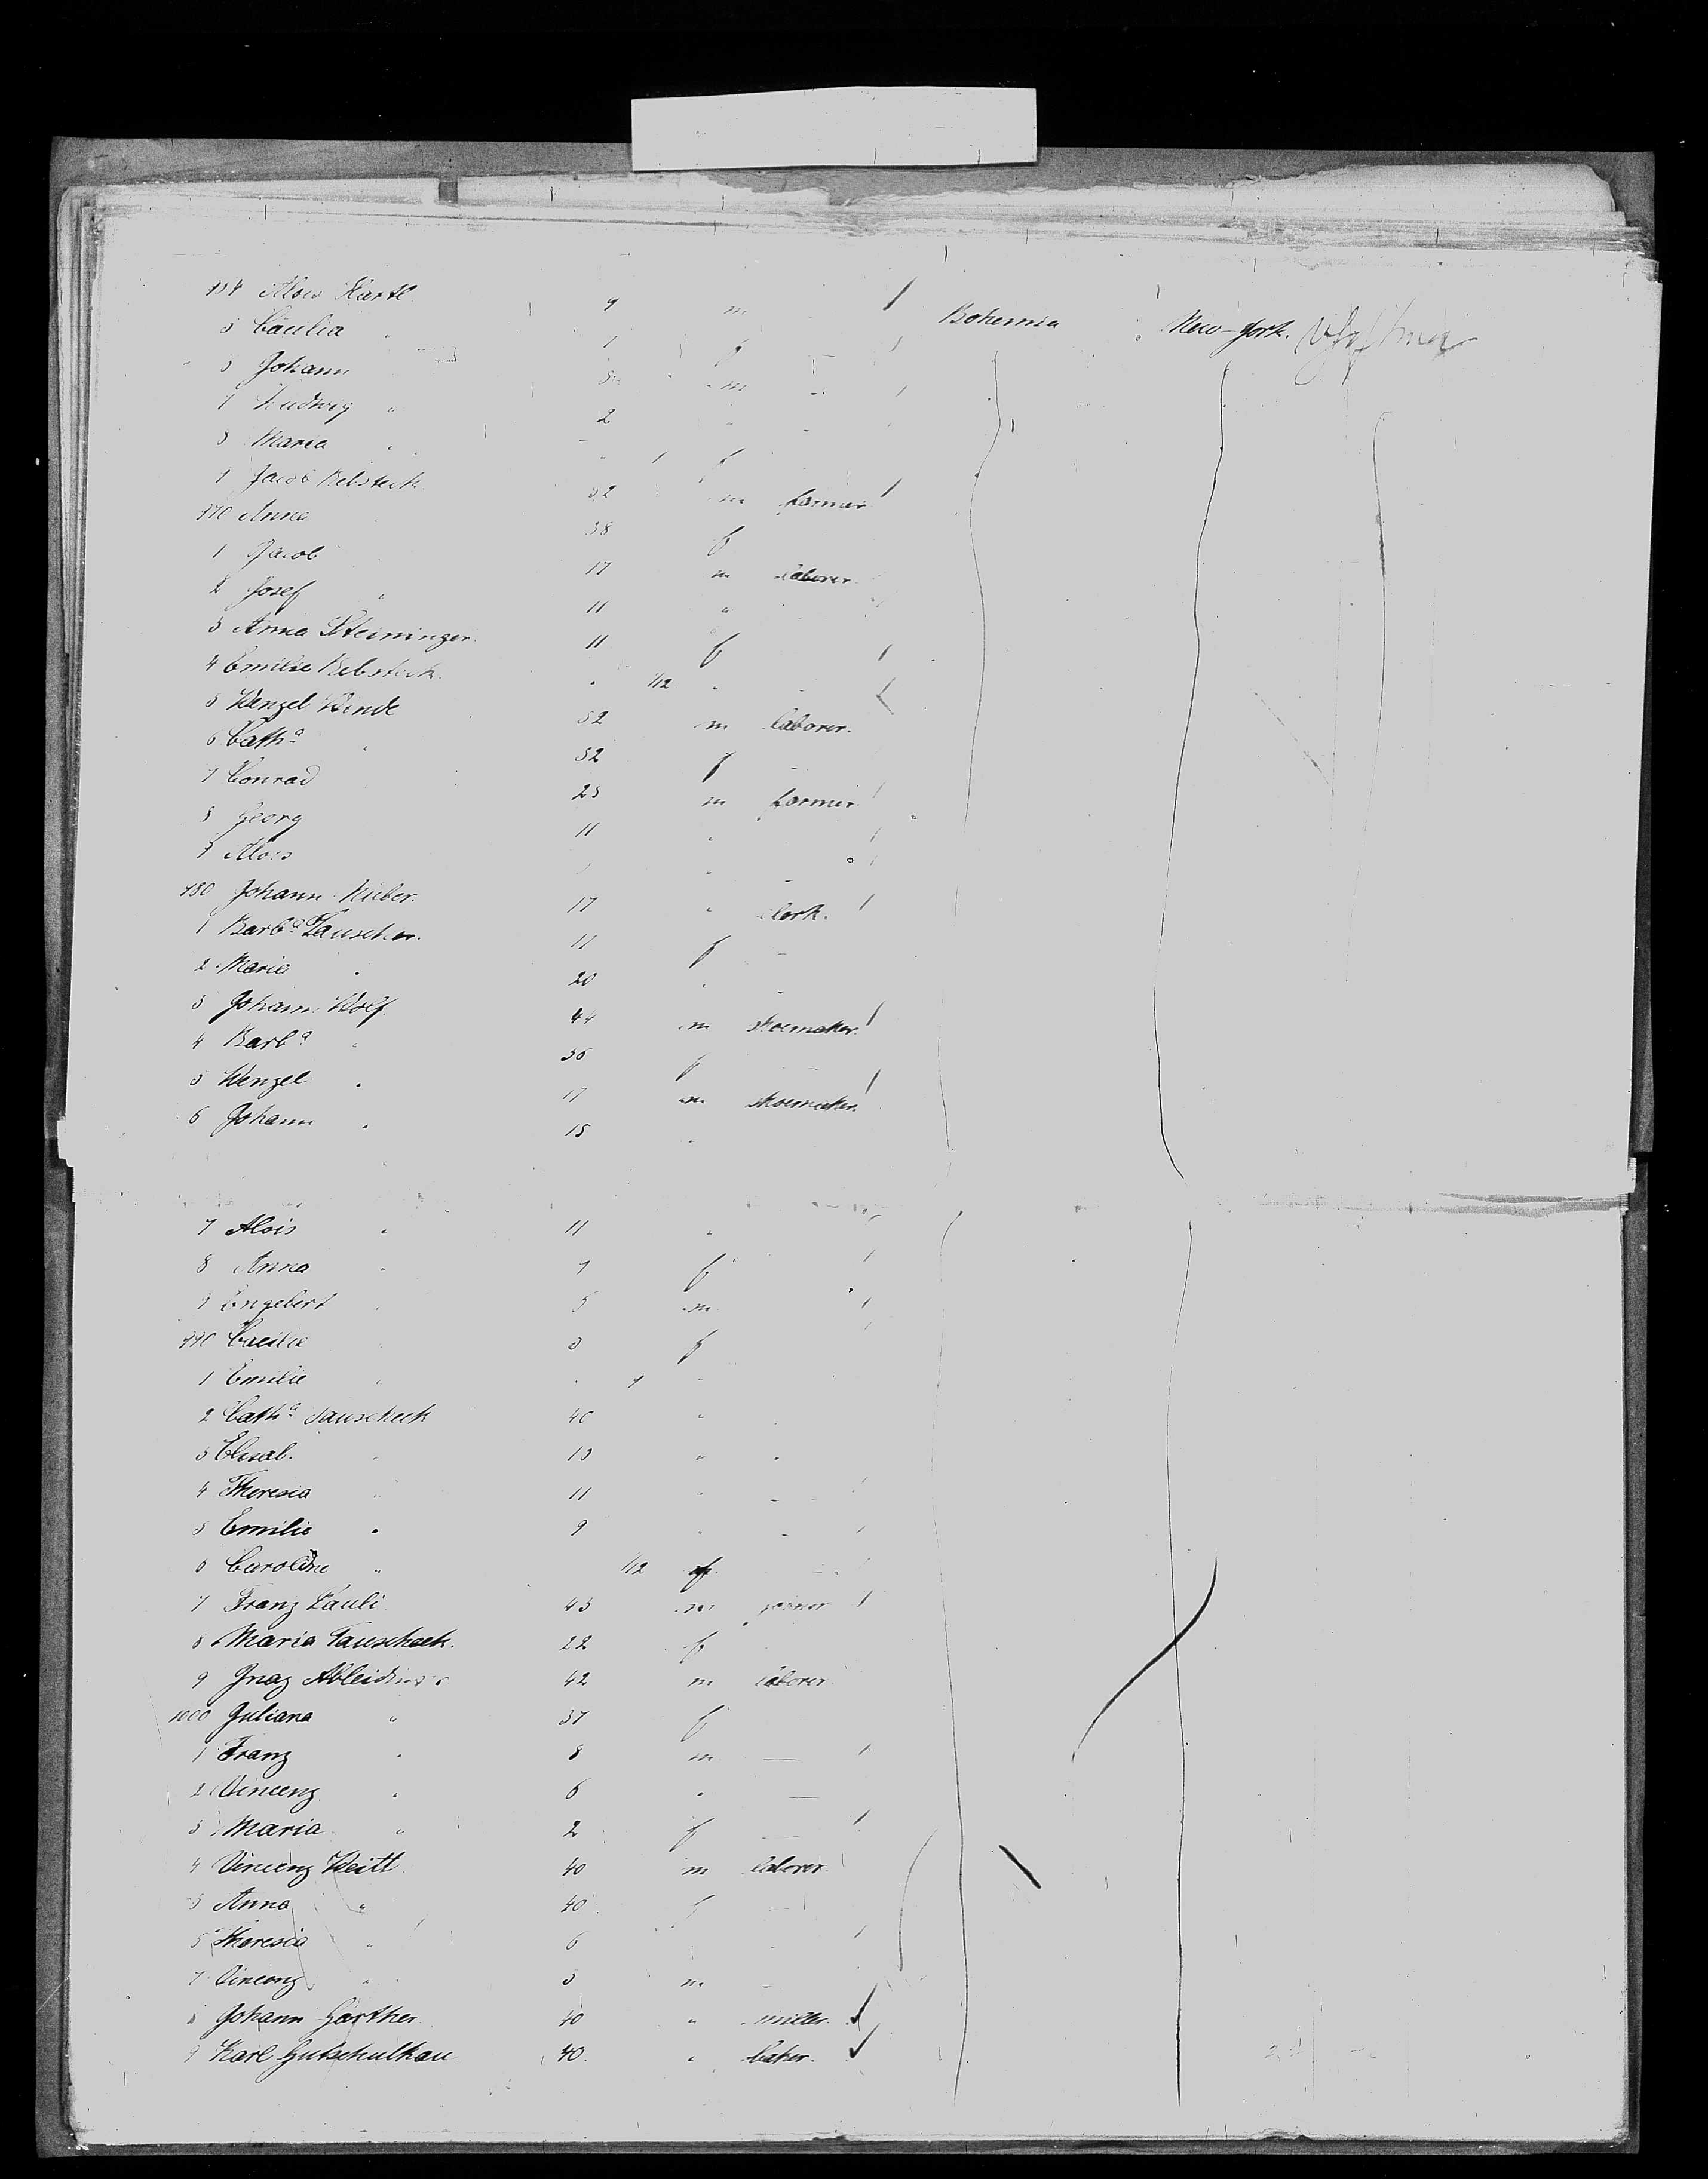 Alois Hartl 9 m Bohemia New-York.
5 Cäcilia " 1 f
Johann 8 m
Ludwig " 2
Maria " f
Jacob Rebsteck 52 m farmer
970 Anna 38 f
1 Jacob 17 m laborer
2 Josef " 11 "
3 Anna Steininger 11 f
4 Emilie Rebsteck 1/12 "
5 Wenzel Binde 52 m laborer.
6 Catha " 52 f
7 Conrad 25 m farmer
8 Georg 11 "
9 Alois
980 Johann Nieber. 17 " clerk.
1 Barba Tauscher. 11 f
2 Maria " 20 "
3 Johann Wolf 44 m shoemaker
4 Barba " 36 f
5 Wenzel " 17 m shoemaker
6 Johann " 15 "
7 Alois " 11 "
8 Anna " 9 f
9 Engelbert " 5 m
990 Cäcilie 3 f
1 Emilie "
2 Catha Tauscheck 40 "
3 Elisab. " 13 "
4 Theresia " 11 "
5 Emilie " 9 "
6 Caroline " 1/12 f
7 Franz Pauli 43 m joiner
8 Maria Tauscheck. 22 f
9 Ignaz Ableidinger 42 m laborer
1000 Juliana " 37 f
1 Franz " 8 m —
2 Vincenz " 6 " —
3 Maria " 2 f —
4 Vincenz Weitl 40 m laborer
5 Anna " 40 f
6 Theresia " 6
7 Vincenz " 3 m
8 Johann Garther 40 " miller.
9 Karl 40. " baker.